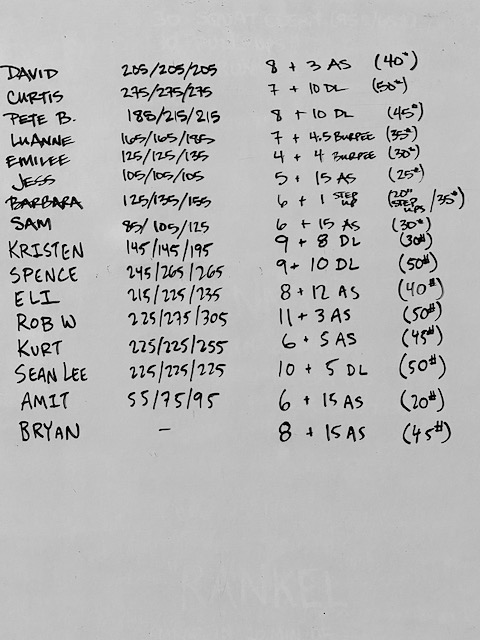 DAVID 205/205/205 8 + 3 AS (40#)
CURTIS 275/275/275 7 + 10 DL (50#)
PETE B. 185/215/215 8 + 10 DL (45#)
LUANNE 165/165/185 7 + 4.5 BURPEE (35#)
EMILEE 125/125/135 4 + 4 BURPEE (30#)
JESS 105/105/105 5 + 15 AS (25#)
BARBARA 125/135/155 6 + 1 STEP UP (20# STEP UPS /35#)
SAM 85/105/125 6 + 15 AS (30#)
KRISTEN 145/145/195 9 + 8 DL (30#)
SPENCE 245/265/265 9 + 10 DL (50#)
ELI 215/225/235 8 + 12 AS (40#)
ROB W 225/275/305 11 + 3 AS (50#)
KURT 225/225/255 6 + 5 AS (45#)
SEAN LEE 225/225/225 10 + 5 DL (50#)
AMIT 55/75/95 6 + 15 AS (20#)
BRYAN - 8 + 15 AS (45#)